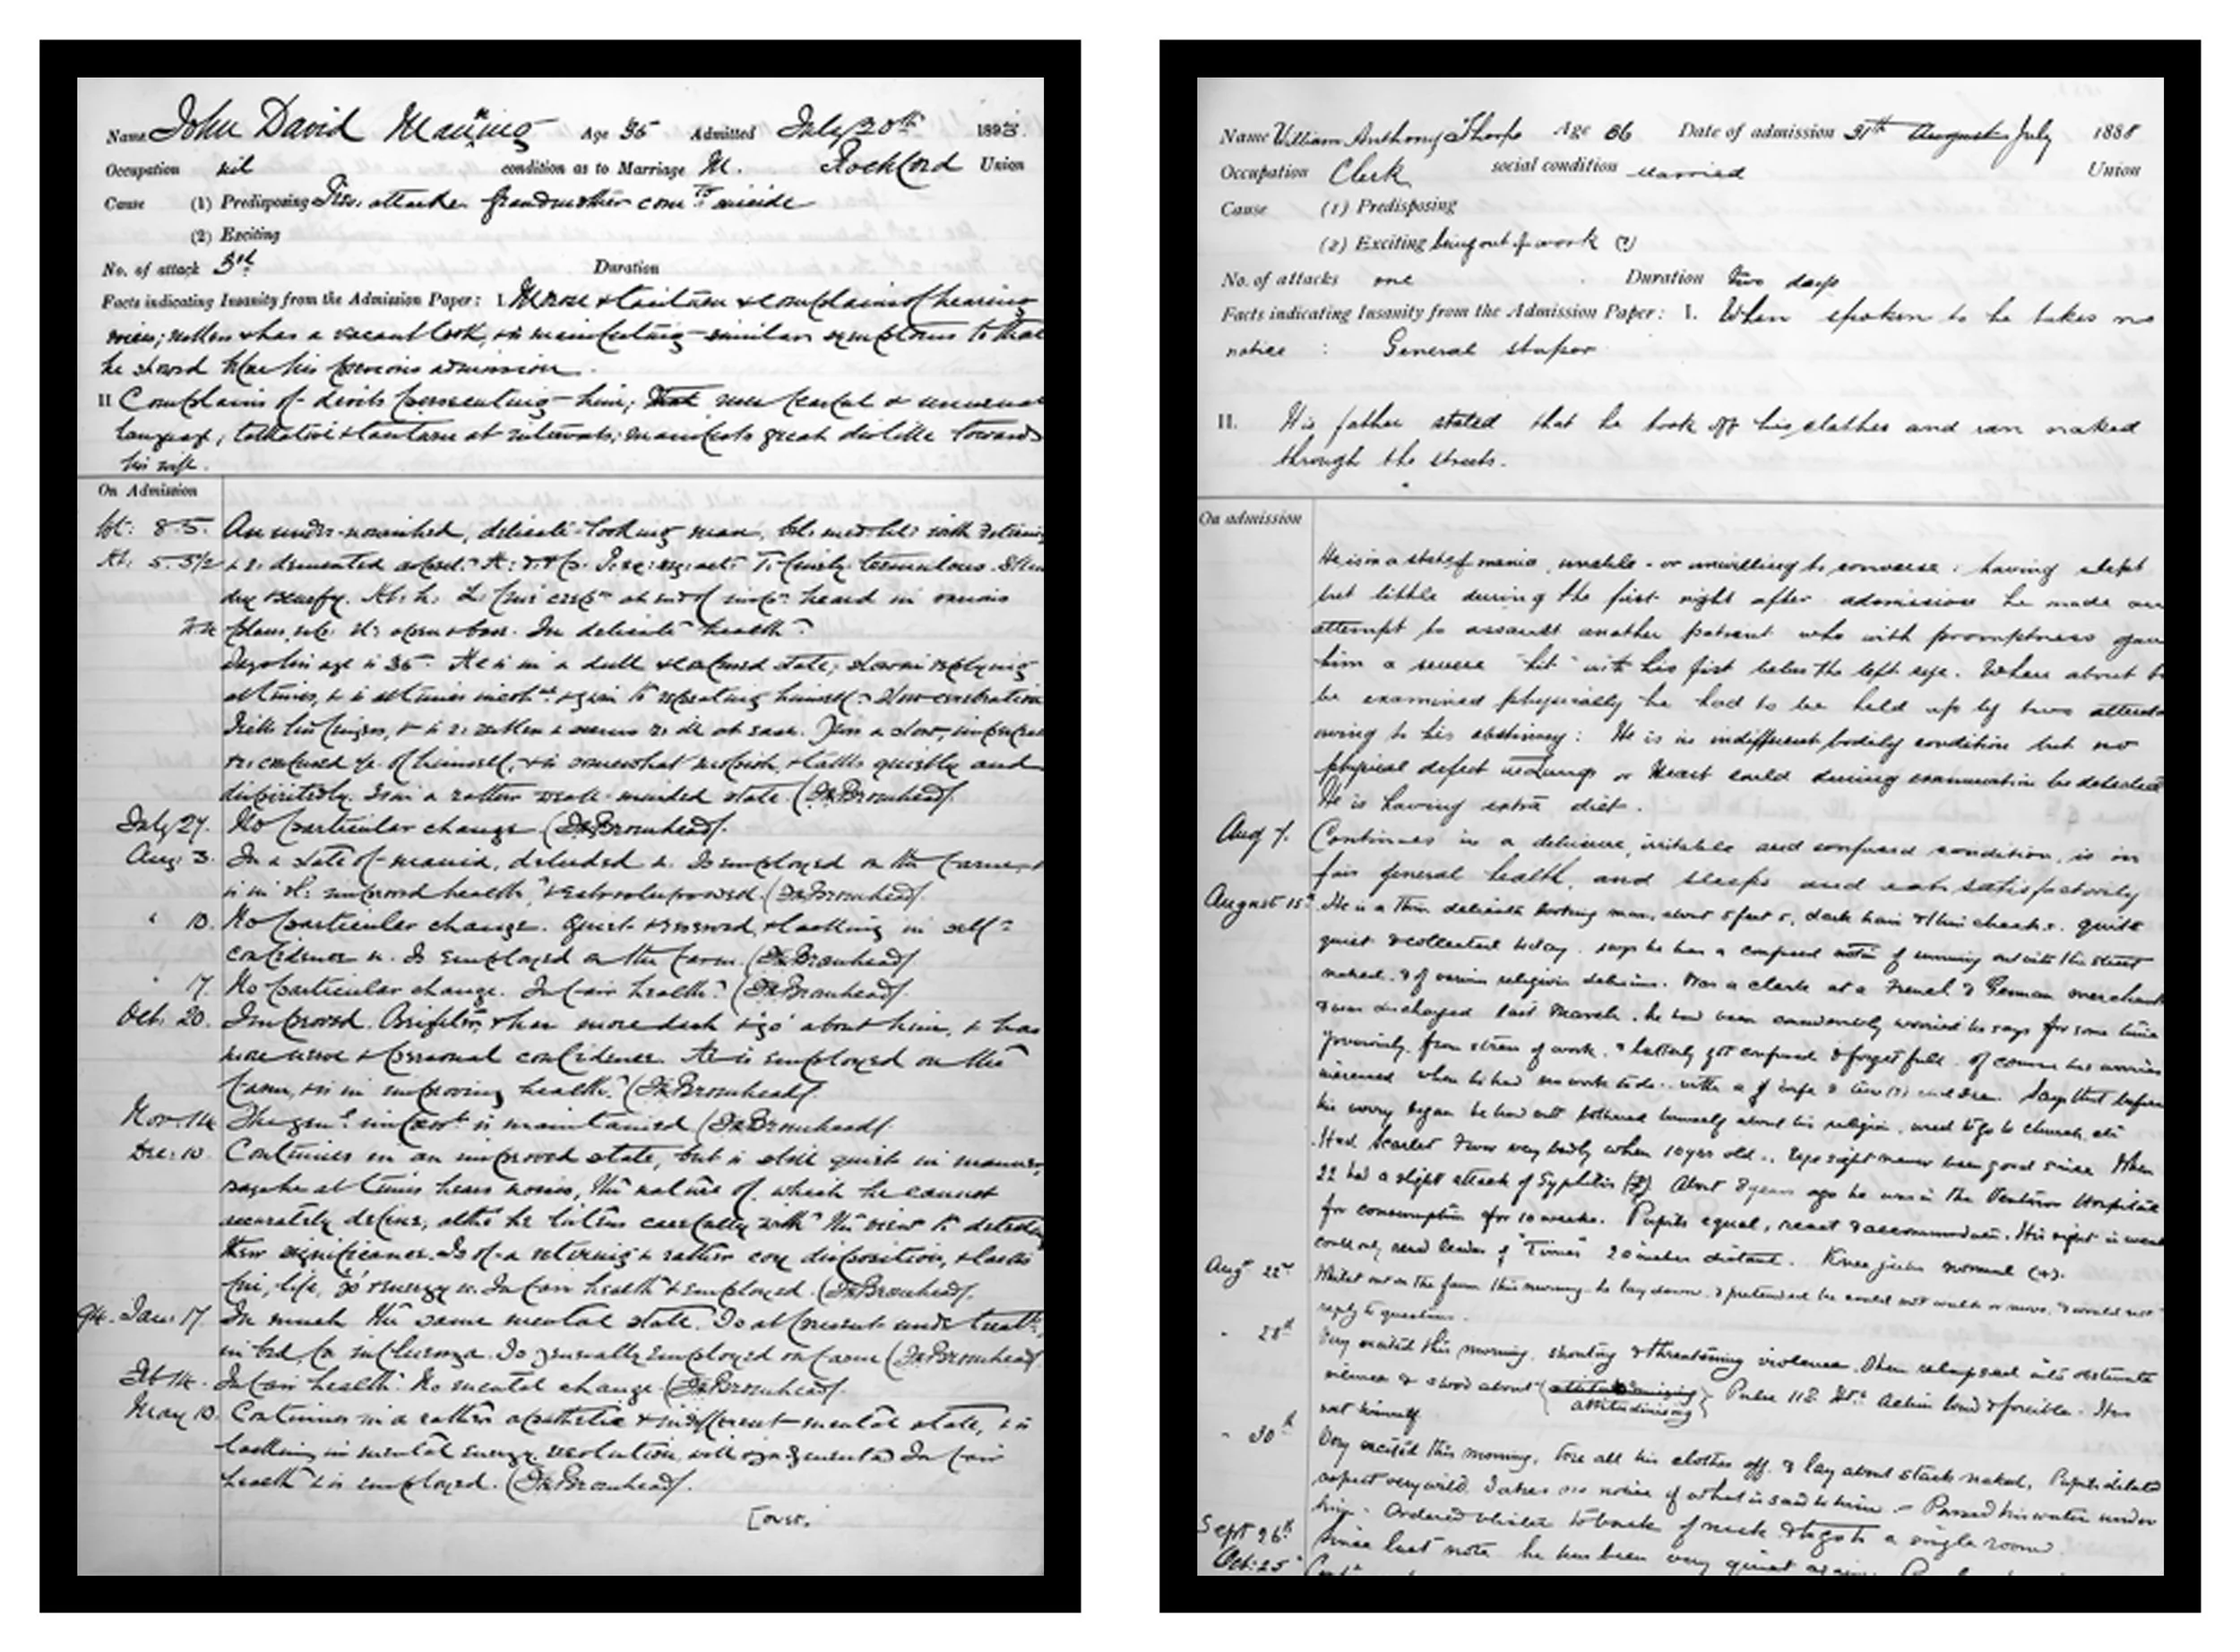 Name John David Manning Age 35 Admitted July 20th 1893.
Occupation nil condition as to Marriage M. Rochford Union
Cause (1) Predisposing attacks Grandmother com^td suicide
(2) Exciting
No. of attack 3rd Duration
Facts indicating Insanity from the Admission Paper: I. Morose & taciturn & complains of hearing
voices; sullen & has a vacant look, & is manifesting similar symptoms to that
he showed before his previous admission.
II Complains of devils persecuting him; uses fearful & unusual
language; talkative & taciturn at intervals; manifests great dislike towards
his wife.
On Admission
Wt: 8-5. An under-nourished, delicate-looking man,
Ht. 5-5½ demented
dry & scurfy. heard in various
In delicate health.
age is 35. He is in a dull & confused state; slow in replying
at times, & is at times & given to repeating himself. Slow cerebration
of himself, & is somewhat & talks quietly and
dispiritedly. Is in a rather weak-minded state. (Dr Bromhead).
July 27. No particular change (Dr Bromhead).
Aug: 3. In a state of mania, deluded &c. Is employed on the farm, &
is in improved health, (Dr Bromhead).
" 10. No particular change. Quiet & reserved, & lacking in self-
confidence &c. Is employed on the farm. (Dr Bromhead)
" 17. No particular change. In fair health. (Dr Bromhead).
Oct. 20. Improved. Brighter, & has more dash & 'go' about him, & has
more nerve & personal confidence. He is employed on the
farm, & is in improving health. (Dr Bromhead).
Nov. 14 The gen^l improv^t is maintained (Dr Bromhead).
Dec: 10. Continues in an improved state, but is still quiet in manner,
says he at times hears noises, the nature of which he cannot
accurately define, altho' he listens carefully with the view to detecting
their significance. Is of a retiring & rather coy disposition, & lacks
fire, life, 'go' & energy &c. In fair health & employed. (Dr Bromhead).
94. Jan: 17 In much the same mental state. Is at present under treat^t
in bed for influenza. Is generally employed on farm (Dr Bromhead)
Feb 14. In fair health. No mental change. (Dr Bromhead).
May 10. Continues in a rather apathetic & indifferent mental state, & is
lacking in mental energy, resolution, will In fair
health & is employed. (Dr Bromhead).
[over.
Name William Anthony Thorpe Age 36 Date of admission 31th August July 1888
Occupation Clerk social condition married Union
Cause (1) Predisposing
(2) Exciting being out of work (?)
No. of attacks one Duration Two days
Facts indicating Insanity from the Admission Paper: I. When spoken to he takes no
notice : General stupor
II. His father stated that he took off his clothes and ran naked
through the streets.
On admission
He is in a state of mania, unable - or unwilling to converse: having slept
but little during the first night after admission he made an
attempt to assault another patient who with promptness gave
him a severe "hit" with his fist below the left eye. When about to
be examined physically he had to be held up by two attend
owing to his obstinacy: He is in indifferent bodily condition but no
physical defect in Lungs or Heart could during examination be detected
He is having extra diet.
Aug 7. Continues in a delusive, irritable and confused condition, is in
fair general health, and sleeps and eats satisfactorily
August 15th He is a thin delicate looking man, about 5 feet 5, dark hair & thin cheeks. quite
quiet & collected today. says he has a confused notion of running out into the street
naked. & of various religious delusions. Was a clerk at a French & German merchants
& was discharged last March. he had been considerably worried he says for some time
previously, from stress of work, & latterly got confused & forgetfull. of course his worries
increased when he had no work to do. with a wife & children. Says that before
his worry began he had not bothered himself about his religion, used to go to church, etc
Had Scarlet Fever very badly when 10 yrs old. Eyesight never been good since When
22 had a slight attack of Syphilis (?) About 8 years ago he was in the Ventnor Hospital
for consumption for 10 weeks. Pupils equal, react & accommodate. His sight is weak
could only read leader of "Times" 20 inches distant. Knee jerks normal (+).
Aug 22nd Whilst out on the farm this morning he lay down & pretended he could not walk or move, & would not
reply to questions.
" 28th Very excited this morning, shouting & threatening violence. then relapsed into obstinate
silence & stood about (attitudinising) Pulse 112 Hts Action loud & forcible. Has
" 30th Very excited this morning, tore all his clothes off & lay about stark naked, Pupils dilated
aspect very wild. Takes no notice of what is said to him - Passed his water under
him - Ordered blister to back of neck & to go to a single room.
Sept 26th Since last note he has been very quiet again.
Oct: 25